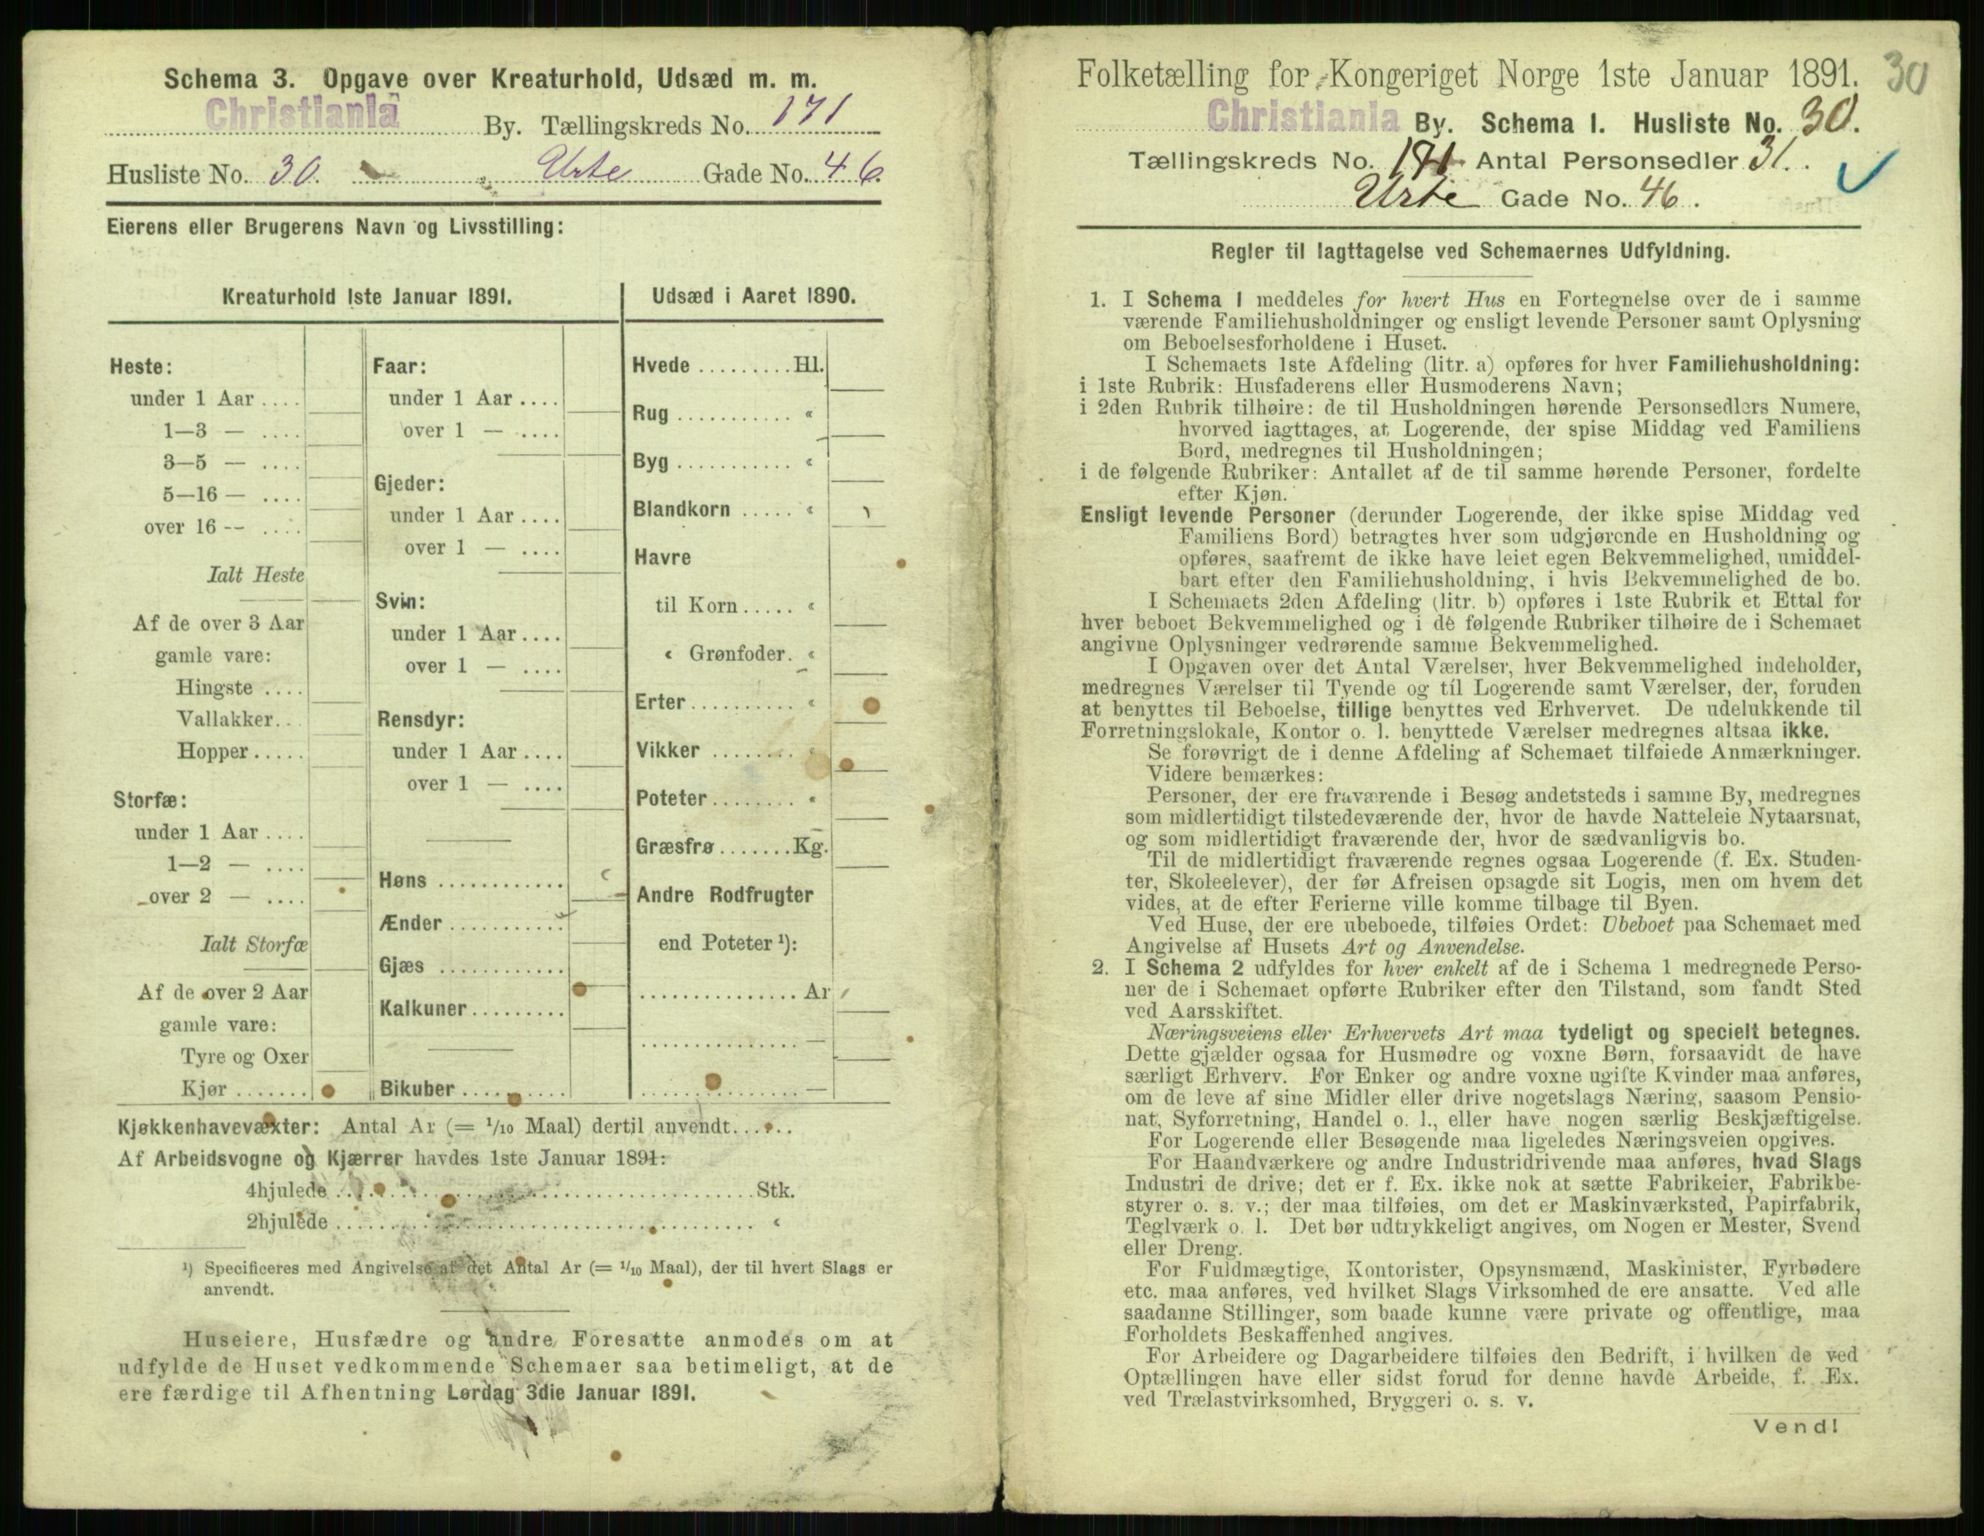 Schema 3. Opgave over Kreaturhold, Udsæd m. m.
Christiania By. Tællingskreds No. 171
Husliste No. 30. Urte Gade No. 46.
Eierens eller Brugerens Navn og Livsstilling:
Kreaturhold 1ste Januar 1891.
Heste:
under 1 Aar ....
1—3 — ....
3—5 — ....
5—16 — ....
over 16 -- ....
Ialt Heste
Af de over 3 Aar
gamle vare:
Hingste ....
Vallakker...
Hopper .....
Storfæ:
under 1 Aar ....
1—2 — ....
over 2 — ....
Ialt Storfæ
Af de over 2 Aar
gamle vare:
Tyre og Oxer
Kjør .......
Faar:
under 1 Aar ....
over 1 — ....
Gjeder:
under 1 Aar ....
over 1 — ....
Svin:
under 1 Aar ....
over 1 — ....
Rensdyr:
under 1 Aar ....
over 1 — ....
Høns ............
Ænder ...........
Gjæs ............
Kalkuner .........
Bikuber ..........
Udsæd i Aaret 1890.
Hvede ......... Hl.
Rug ........... «
Byg ........... «
Blandkorn ..... «
Havre
til Korn ..... «
« Grønfoder. «
Erter .......... «
Vikker ......... «
Poteter ........ «
Græsfrø ....... Kg.
Andre Rodfrugter
end Poteter ¹):
............... Ar
............... —
............... —
Kjøkkenhavevæxter: Antal Ar (= 1/10 Maal) dertil anvendt......
Af Arbeidsvogne og Kjærrer havdes 1ste Januar 1891:
4hjulede ........................................ Stk.
2hjulede ........................................ «
¹) Specificeres med Angivelse af det Antal Ar (= 1/10 Maal), der til hvert Slags er
anvendt.
Huseiere, Husfædre og andre Foresatte anmodes om at
udfylde de Huset vedkommende Schemaer saa betimeligt, at de
ere færdige til Afhentning Lørdag 3die Januar 1891.
Folketælling for Kongeriget Norge 1ste Januar 1891. 30
Christiania By. Schema I. Husliste No. 30.
Tællingskreds No. 171 Antal Personsedler 31.
Urte Gade No. 46.
Regler til Iagttagelse ved Schemaernes Udfyldning.
1. I Schema 1 meddeles for hvert Hus en Fortegnelse over de i samme
værende Familiehusholdninger og ensligt levende Personer samt Oplysning
om Beboelsesforholdene i Huset.
I Schemaets 1ste Afdeling (litr. a) opføres for hver Familiehusholdning:
i 1ste Rubrik: Husfaderens eller Husmoderens Navn;
i 2den Rubrik tilhøire: de til Husholdningen hørende Personsedlers Numere,
hvorved iagttages, at Logerende, der spise Middag ved Familiens
Bord, medregnes til Husholdningen;
i de følgende Rubriker: Antallet af de til samme hørende Personer, fordelte
efter Kjøn.
Ensligt levende Personer (derunder Logerende, der ikke spise Middag ved
Familiens Bord) betragtes hver som udgjørende en Husholdning og
opføres, saafremt de ikke have leiet egen Bekvemmelighed, umiddel-
bart efter den Familiehusholdning, i hvis Bekvemmelighed de bo.
I Schemaets 2den Afdeling (litr. b) opføres i 1ste Rubrik et Ettal for
hver beboet Bekvemmelighed og i de følgende Rubriker tilhøire de i Schemaet
angivne Oplysninger vedrørende samme Bekvemmelighed.
I Opgaven over det Antal Værelser, hver Bekvemmelighed indeholder,
medregnes Værelser til Tyende og til Logerende samt Værelser, der, foruden
at benyttes til Beboelse, tillige benyttes ved Erhvervet. De udelukkende til
Forretningslokale, Kontor o. l. benyttede Værelser medregnes altsaa ikke.
Se forøvrigt de i denne Afdeling af Schemaet tilføiede Anmærkninger.
Videre bemærkes:
Personer, der ere fraværende i Besøg andetsteds i samme By, medregnes
som midlertidigt tilstedeværende der, hvor de havde Natteleie Nytaarsnat,
og som midlertidigt fraværende der, hvor de sædvanligvis bo.
Til de midlertidigt fraværende regnes ogsaa Logerende (f. Ex. Studen-
ter, Skoleelever), der før Afreisen opsagde sit Logis, men om hvem det
vides, at de efter Ferierne ville komme tilbage til Byen.
Ved Huse, der ere ubeboede, tilføies Ordet: Ubeboet paa Schemaet med
Angivelse af Husets Art og Anvendelse.
2. I Schema 2 udfyldes for hver enkelt af de i Schema 1 medregnede Perso-
ner de i Schemaet opførte Rubriker efter den Tilstand, som fandt Sted
ved Aarsskiftet.
Næringsveiens eller Erhvervets Art maa tydeligt og specielt betegnes.
Dette gjælder ogsaa for Husmødre og voxne Børn, forsaavidt de have
særligt Erhverv. For Enker og andre voxne ugifte Kvinder maa anføres,
om de leve af sine Midler eller drive nogetslags Næring, saasom Pensio-
nat, Syforretning, Handel o. l., eller have nogen særlig Beskjæftigelse.
For Logerende eller Besøgende maa ligeledes Næringsveien opgives.
For Haandværkere og andre Industridrivende maa anføres, hvad Slags
Industri de drive; det er f. Ex. ikke nok at sætte Fabrikeier, Fabrikbe-
styrer o. s. v.; der maa tilføies, om det er Maskinværksted, Papirfabrik,
Teglværk o. l. Det bør udtrykkeligt angives, om Nogen er Mester, Svend
eller Dreng.
For Fuldmægtige, Kontorister, Opsynsmænd, Maskinister, Fyrbødere
etc. maa anføres, ved hvilket Slags Virksomhed de ere ansatte. Ved alle
saadanne Stillinger, som baade kunne være private og offentlige, maa
Forholdets Beskaffenhed angives.
For Arbeidere og Dagarbeidere tilføies den Bedrift, i hvilken de ved
Optællingen have eller sidst forud for denne havde Arbeide, f. Ex.
ved Trælastvirksomhed, Bryggeri o. s. v.
Vend!